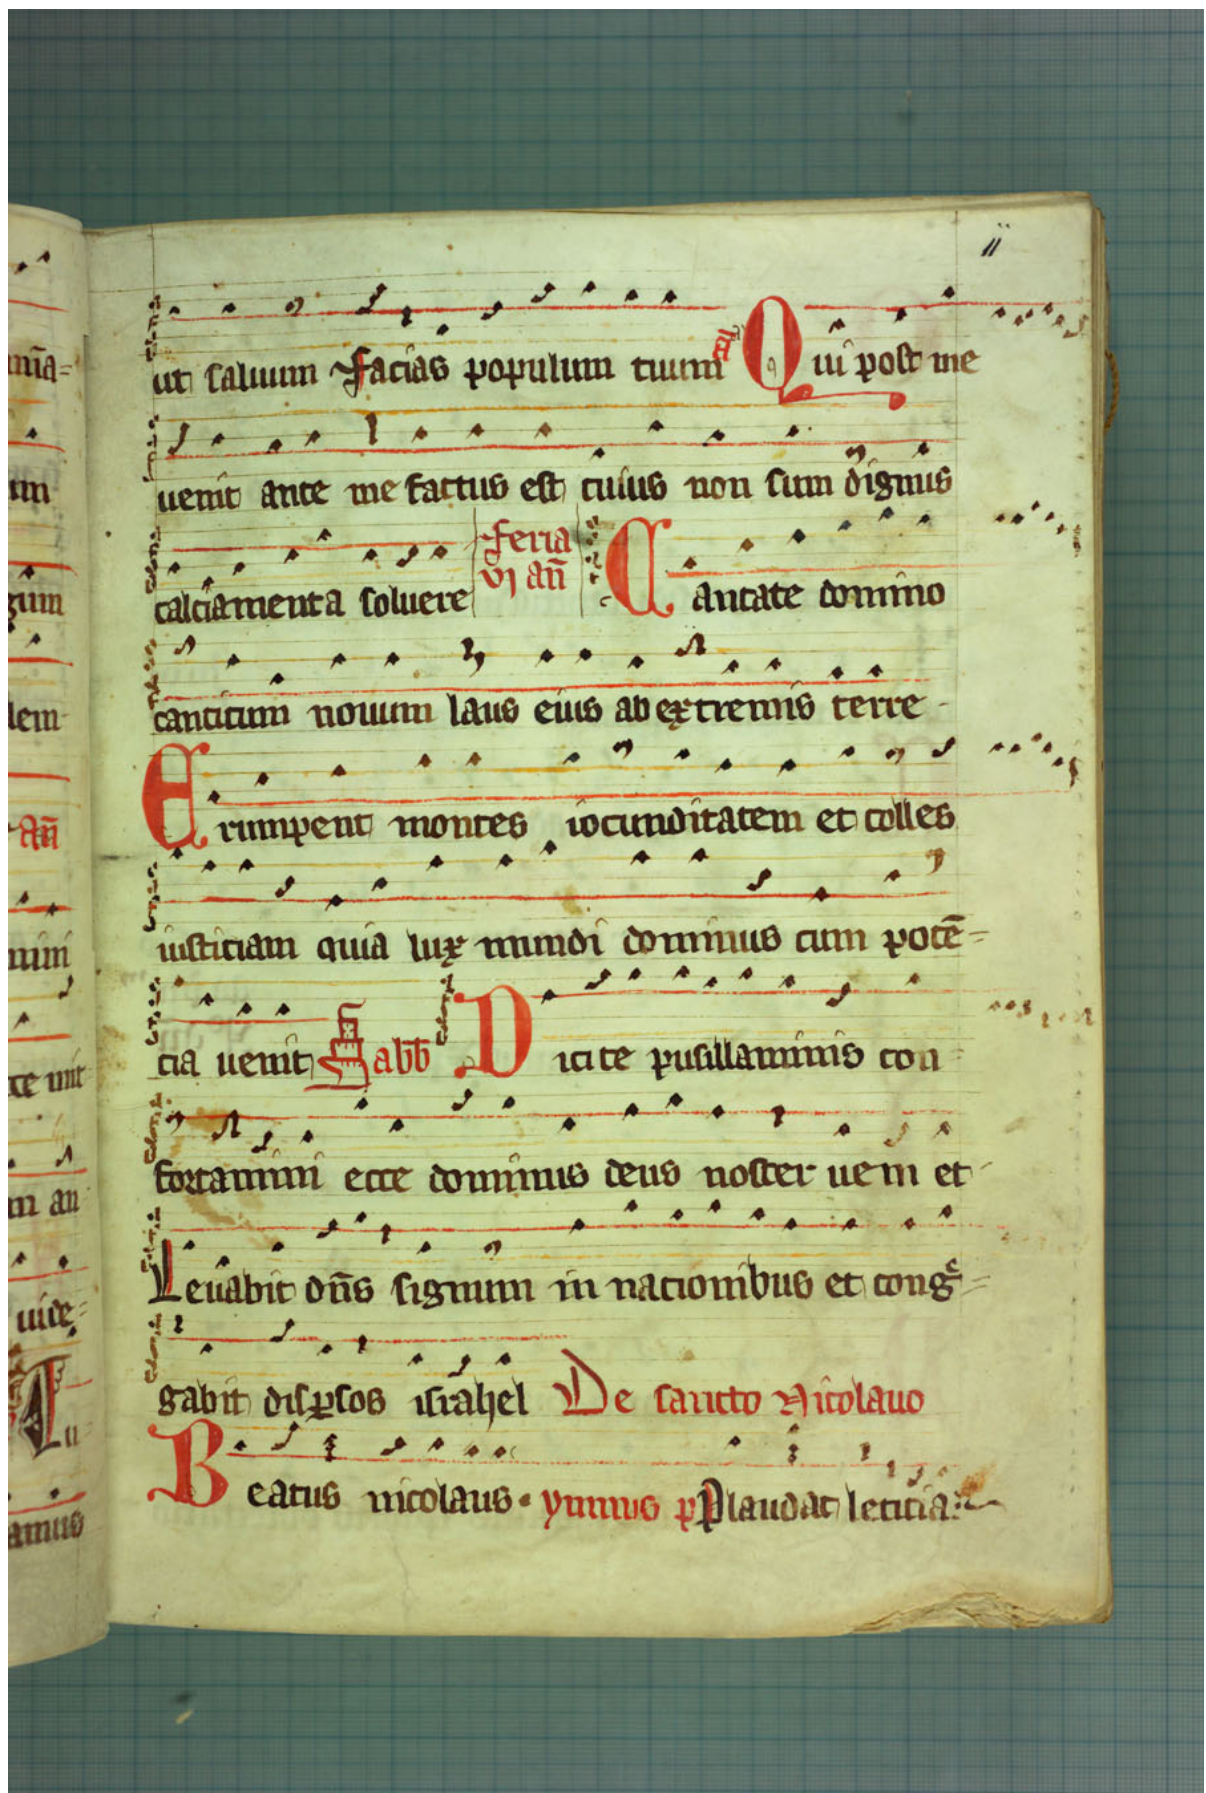 ii
ut saluum facias populum tuum a Qui post me
uenit ante me factus est cuius non sum dignus
calciamenta soluere feria Cantate domino
vj an̄
canticum nouum laus eius ab extremis terre
Erumpent montes iocunditatem et colles
iusticiam quia lux mundi dominus cum potē=
cia uenit Sabb̄ Dicite pusillanimis con=
fortamini ecce dominus deus noster ueni et
Leuabit dn̄s signum in nacionibus et cong=
gabit disꝑsos israhel De sancto Nicolauo
Beatus nicolaus ymnus Plaudat leticia